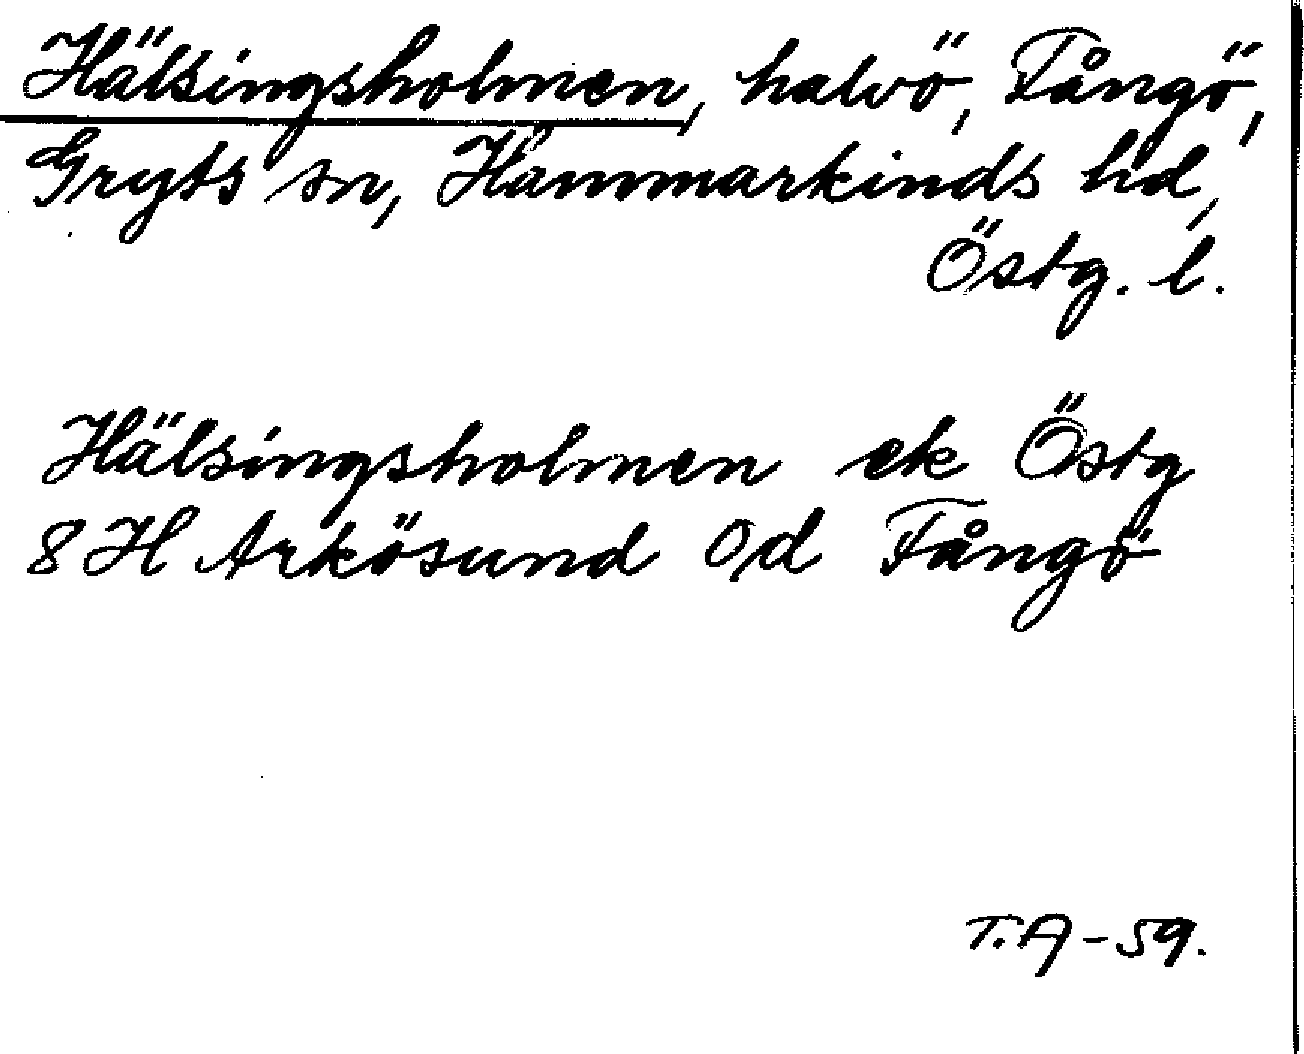 Hälsingsholmen, halvö, Fångö,
Gryts sn, Hammarkinds hd,
Östg. l.
Hälsingsholmen ek Östg
8 H Arkösund Od Fångö
T.A-59.